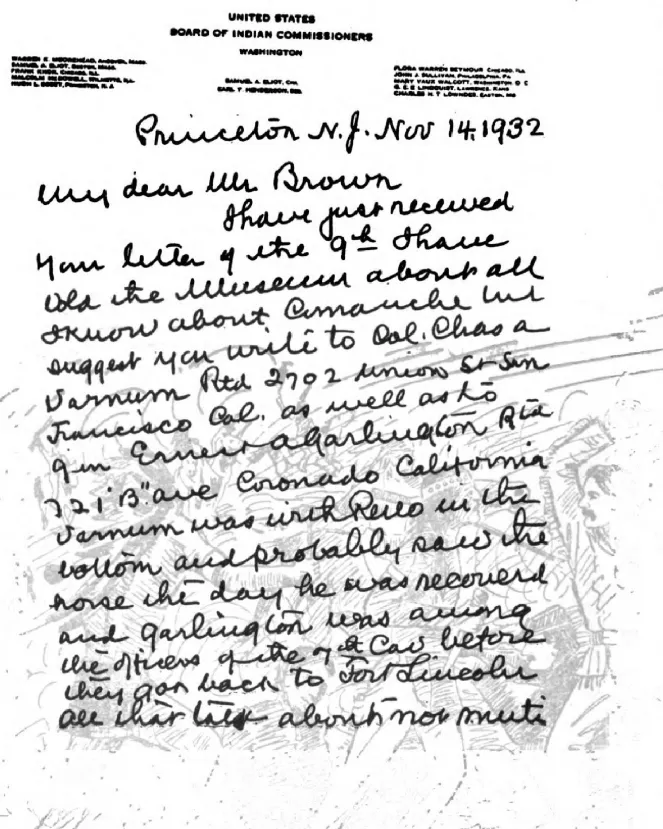 UNITED STATES
BOARD OF INDIAN COMMISSIONERS
WASHINGTON
WARREN K. MOOREHEAD, ANDOVER, MASS.
SAMUEL A. ELIOT, BOSTON, MASS.
FRANK KNOX, CHICAGO, ILL.
MALCOLM MCDOWELL, WILMETTE, ILL.
HUGH L. SCOTT, PRINCETON, N. J.
SAMUEL A. ELIOT, CHM.
EARL Y. HENDERSON, SEC.
FLORA WARREN SEYMOUR, CHICAGO, ILL.
JOHN J. SULLIVAN, PHILADELPHIA, PA.
MARY VAUX WALCOTT, WASHINGTON, D. C.
G. E. E. LINDQUIST, LAWRENCE, KANS.
CHARLES H. T. LOWNDES, EASTON, MD.
Princeton N.J. Nov 14.1932
My dear Mr Brown
I have just received
your letter of the 9th I have
told the Museum about all
I know about Comanche but
suggest you write to Col. Chas a
Varnum Rtd 2702 Union St San
Francisco Cal. as well as to
Gen Ernest a Garlington Rtd
721 "B" ave Coronado California
Varnum was with Reno in the
bottom and probably saw the
horse the day he was recovered
and Garlington was among
the officers of the 7th Cav before
they got back to Fort Lincoln
all that talk about not muti